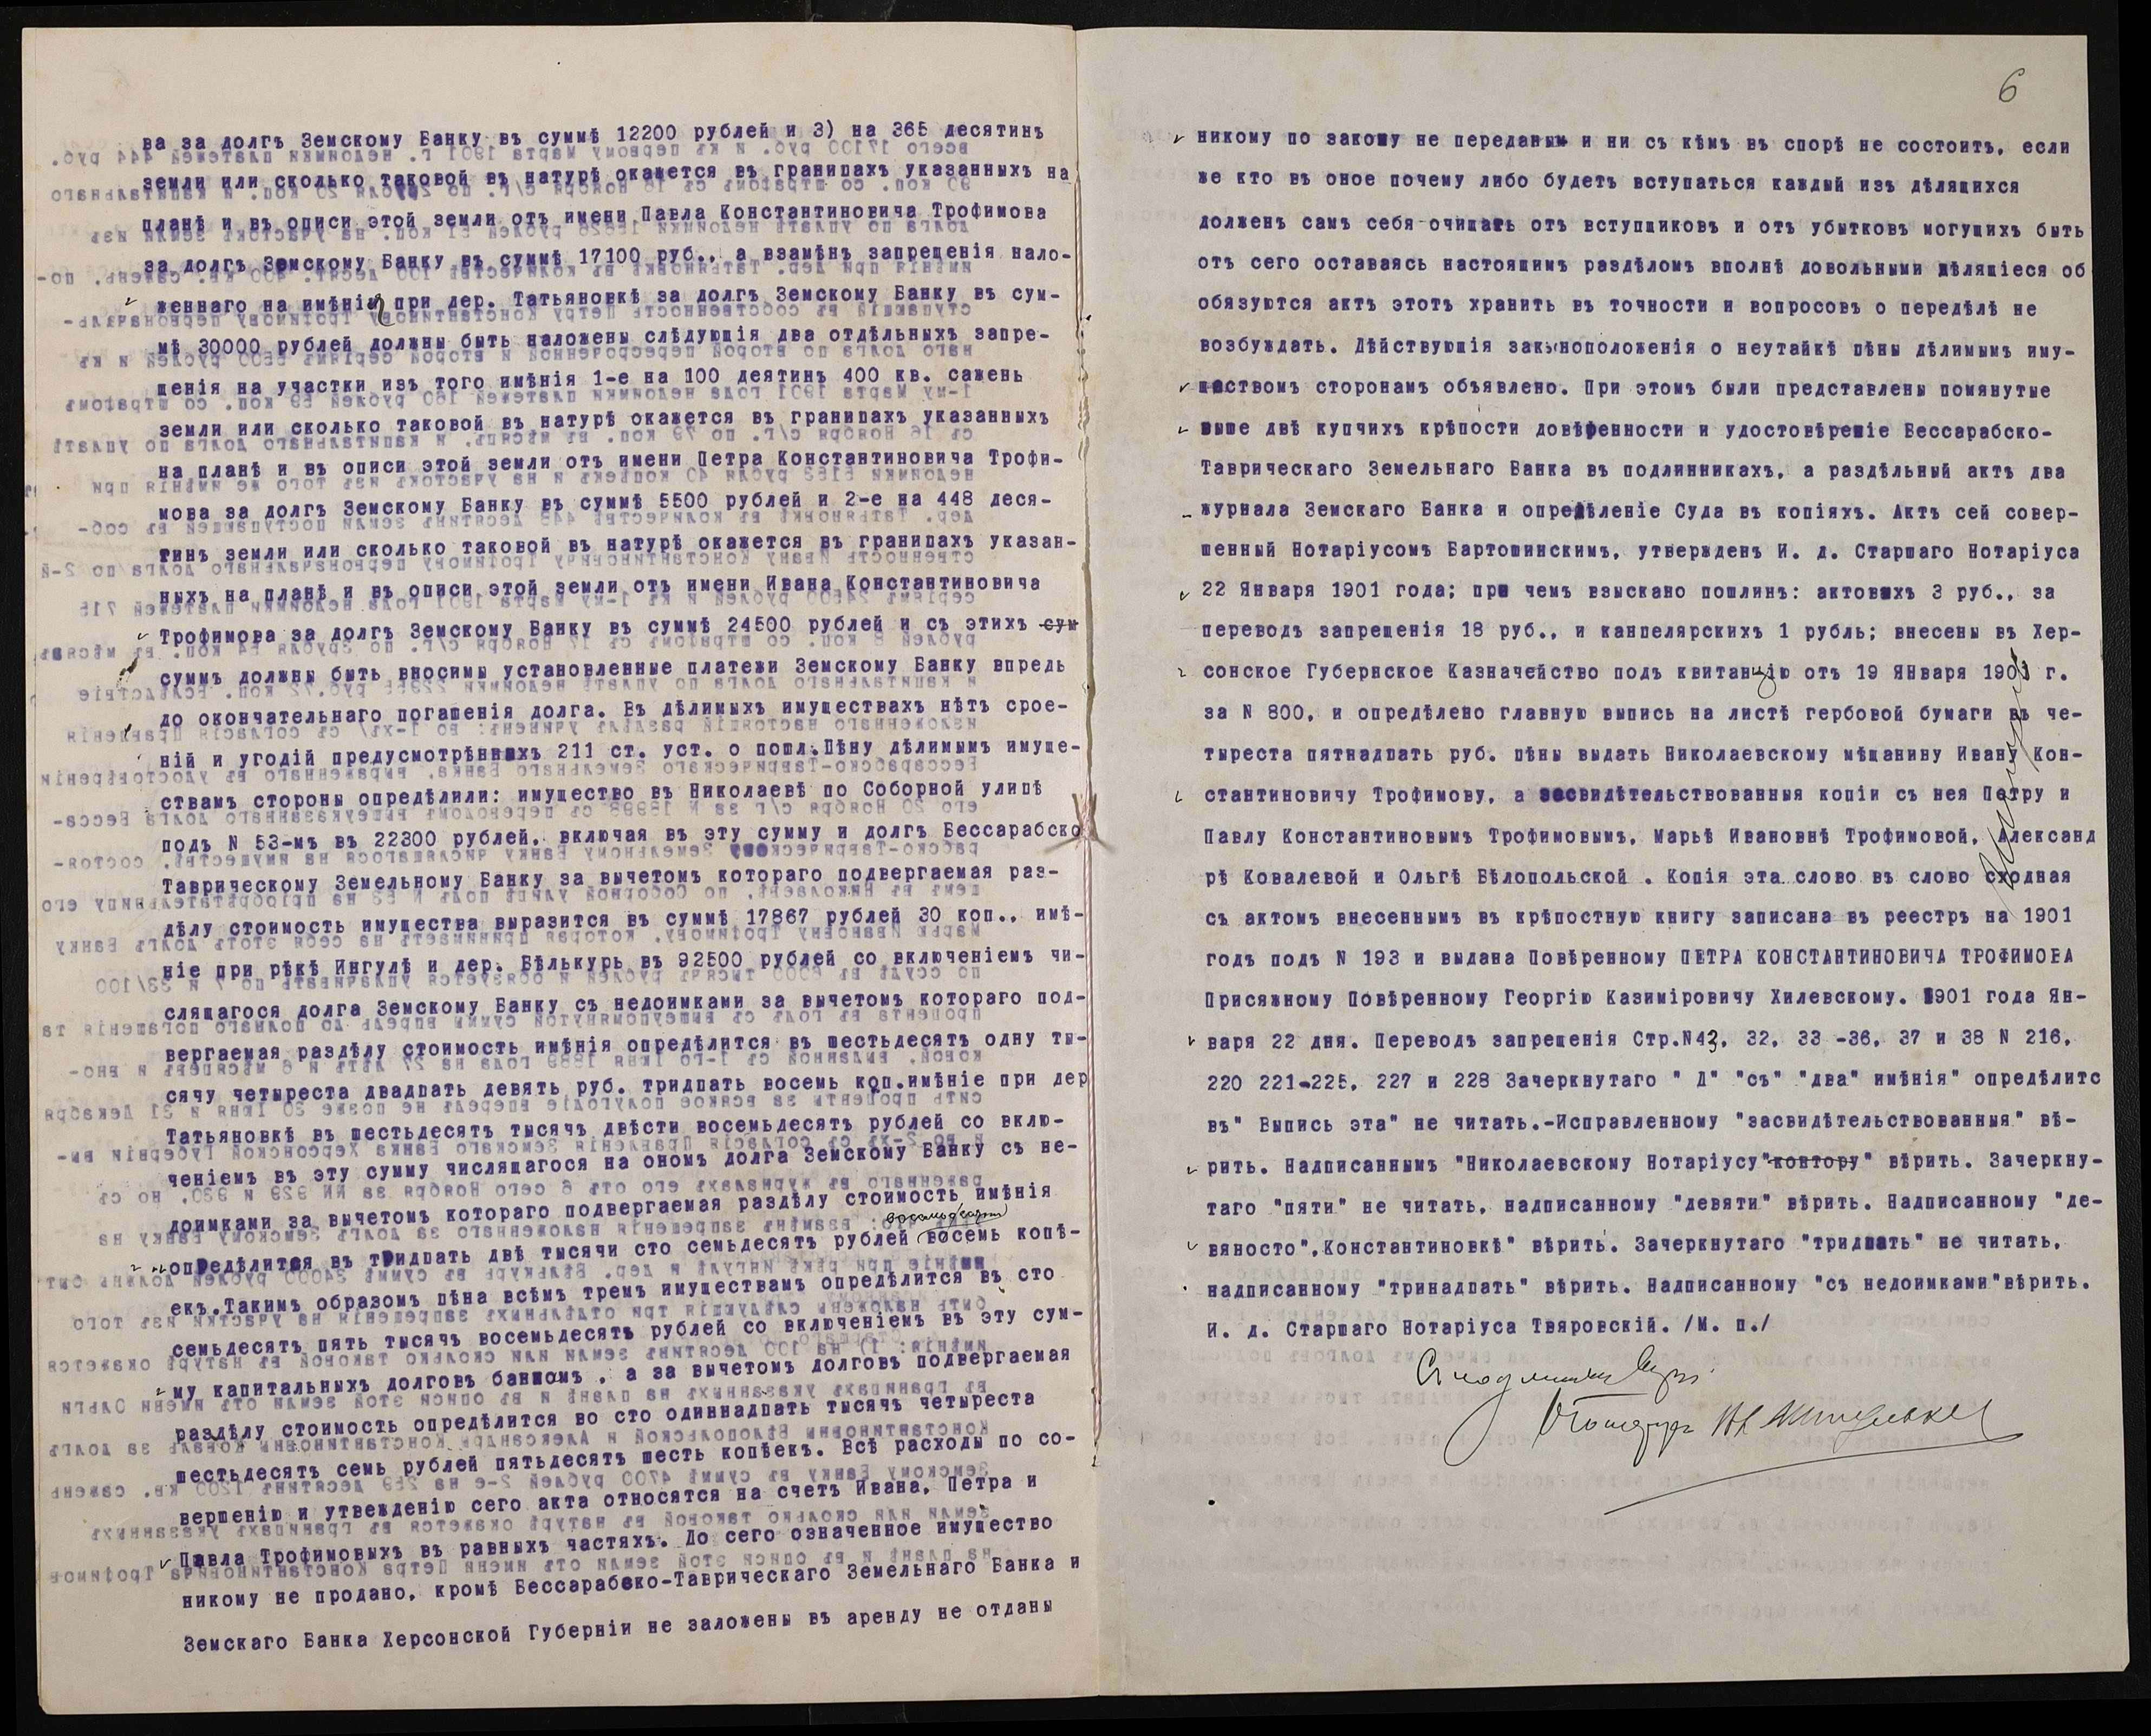 ва за долгъ Земскому Банку въ суммѣ 12200 рублей и 3) на 365 десятинъ
земли или сколько таковой въ натурѣ окажется въ границахъ указанныхъ на
планѣ и въ описи этой земли отъ имени Павла Константиновича Трофимова
за долгъ Земскому Банку въ суммѣ 17100 руб., а взамѣнъ запрещенія нало-
женнаго на имѣніи при дер. Татьяновкѣ за долгъ Земскому Банку въ сум-
мѣ 30000 рублей должны быть наложены слѣдующія два отдѣльныхъ запре-
щенія на участки изъ того имѣнія 1-е на 100 деятинъ 400 кв. сажень
земли или сколько таковой въ натурѣ окажется въ границахъ указанныхъ
на планѣ и въ описи этой земли отъ имени Петра Константиновича Трофи-
мова за долгъ Земскому Банку въ суммѣ 5500 рублей и 2-е на 448 деся-
тинъ земли или сколько таковой въ натурѣ окажется въ границахъ указан-
ныхъ на планѣ и въ описи этой земли отъ имени Ивана Константиновича
Трофимова за долгъ Земскому Банку въ суммѣ 24500 рублей и съ этихъ сум
суммъ должны быть вносимы установленные платежи Земскому Банку впредь
до окончательнаго погашенія долга. Въ дѣлимыхъ имуществахъ нѣтъ срое-
ній и угодій предусмотрѣнныхъ 211 ст. уст. о пошл.Цѣну дѣлимымъ имуще-
ствамъ стороны опредѣлили: имущество въ Николаевѣ по Соборной улицѣ
подъ N 53-мъ въ 22300 рублей, включая въ эту сумму и долгъ Бессарабско
Таврическому Земельному Банку за вычетомъ котораго подвергаемая раз-
дѣлу стоимость имущества выразится въ суммѣ 17867 рублей 30 коп., имѣ-
ніе при рѣкѣ Ингулѣ и дер. Бѣлькурь въ 92500 рублей со включеніемъ чи-
слящагося долга Земскому Банку съ недоимками за вычетомъ котораго под-
вергаемая раздѣлу стоимость имѣнія опредѣлится въ шестьдесятъ одну ты-
сячу четыреста двадцать девять руб. тридцать восемь коп.имѣніе при дер
Татьяновкѣ въ шестьдесятъ тысячъ двѣсти восемьдесятъ рублей со вклю-
ченіемъ въ эту сумму числящагося на ономъ долга Земскому Банку съ не-
доимками за вычетомъ котораго подвергаемая раздѣлу стоимость имѣнія
восемьдесятъ
опредѣлится въ тридцать двѣ тысячи сто семьдесятъ рублей восемь копѣ-
екъ.Такимъ образомъ цѣна всѣмъ тремъ имуществамъ опредѣлится въ сто
семьдесятъ пять тысячъ восемьдесятъ рублей со включеніемъ въ эту сум-
му капитальныхъ долговъ банкомъ , а за вычетомъ долговъ подвергаемая
раздѣлу стоимость опредѣлится во сто одиннадцать тысячъ четыреста
шестьдесятъ семь рублей пятьдесятъ шесть копѣекъ. Всѣ расходы по со-
вершенію и утвежденію сего акта относятся на счетъ Ивана, Петра и
Павла Трофимовыхъ въ равныхъ частяхъ. До сего означенное имущество
никому не продано, кромѣ Бессарабско-Таврическаго Земельнаго Банка и
Земскаго Банка Херсонской Губерніи не заложены въ аренду не отданы
6
никому по закону не переданым и ни съ кѣмъ въ спорѣ не состоитъ, если
же кто въ оное почему либо будетъ вступаться каждый изъ дѣлящихся
долженъ самъ себя очищать отъ вступщиковъ и отъ убытковъ могущихъ быть
отъ сего оставаясь настоящимъ раздѣломъ вполнѣ довольными дѣлящіеся об
обязуются актъ этотъ хранить въ точности и вопросовъ о передѣлѣ не
возбуждать. Дѣйствующія законоположенія о неутайкѣ цѣны дѣлимымъ иму-
ществомъ сторонамъ объявлено. При этомъ были представлены помянутые
выше двѣ купчихъ крѣпости довѣренности и удостовѣреніе Бессарабско-
Таврическаго Земельнаго Банка въ подлинникахъ, а раздѣльный актъ два
журнала Земскаго Банка и опредѣленіе Суда въ копіяхъ. Актъ сей совер-
шенный Нотаріусомъ Бартошинскимъ, утвержденъ И. д. Старшаго Нотаріуса
22 Января 1901 года; при чемъ взыскано пошлинъ: актовыхъ 3 руб., за
переводъ запрещенія 18 руб., и канцелярскихъ 1 рубль; внесены въ Хер-
сонское Губернское Казначейство подъ квитанцію отъ 19 ЯНваря 1901 г.
за N 800, и опредѣлено главную выпись на листѣ гербовой бумаги въ че-
тыреста пятнадцать руб. цѣны выдать Николаевскому мѣщанину Ивану Кон-
стантиновичу Трофимову, а засвидѣтельствованныя копіи съ нея Петру и
Павлу Константиновымъ Трофимовымъ, Марьѣ Ивановнѣ Трофимовой, Александ
рѣ Ковалевой и Ольгѣ Бѣлопольской . Копія эта слово въ слово сходная
съ актомъ внесеннымъ въ крѣпостную книгу записана въ реестръ на 1901
годъ подъ N 193 и выдана Повѣренному ПЕТРА КОНСТАНТИНОВИЧА ТРОФИМОВА
Присяжному Повѣренному Георгію Казиміровичу Хилевскому. 1901 года Ян-
варя 22 дня. Переводъ запрещенія Стр.N43, 32, 33 -36, 37 и 38 N 216,
220 221-225, 227 и 228 Зачеркнутаго " Д" "съ" "два" имѣнія" опредѣлитс
въ" Выпись эта" не читать.-Исправленному "засвидѣтельствованныя" вѣ-
рить. Надписаннымъ "Николаевскому Нотаріусу"контору" вѣрить. Зачеркну-
таго "пяти" не читать, надписанному "девяти" вѣрить. Надписанному "де-
вяносто",Константиновкѣ" вѣрить. Зачеркнутаго "тридцать" не читать,
надписанному "тринадцать" вѣрить. Надписанному "съ недоимками"вѣрить.
И. д. Старшаго Нотаріуса Твяровскій. /М. п./
Съ подлиннымъ вѣрно: